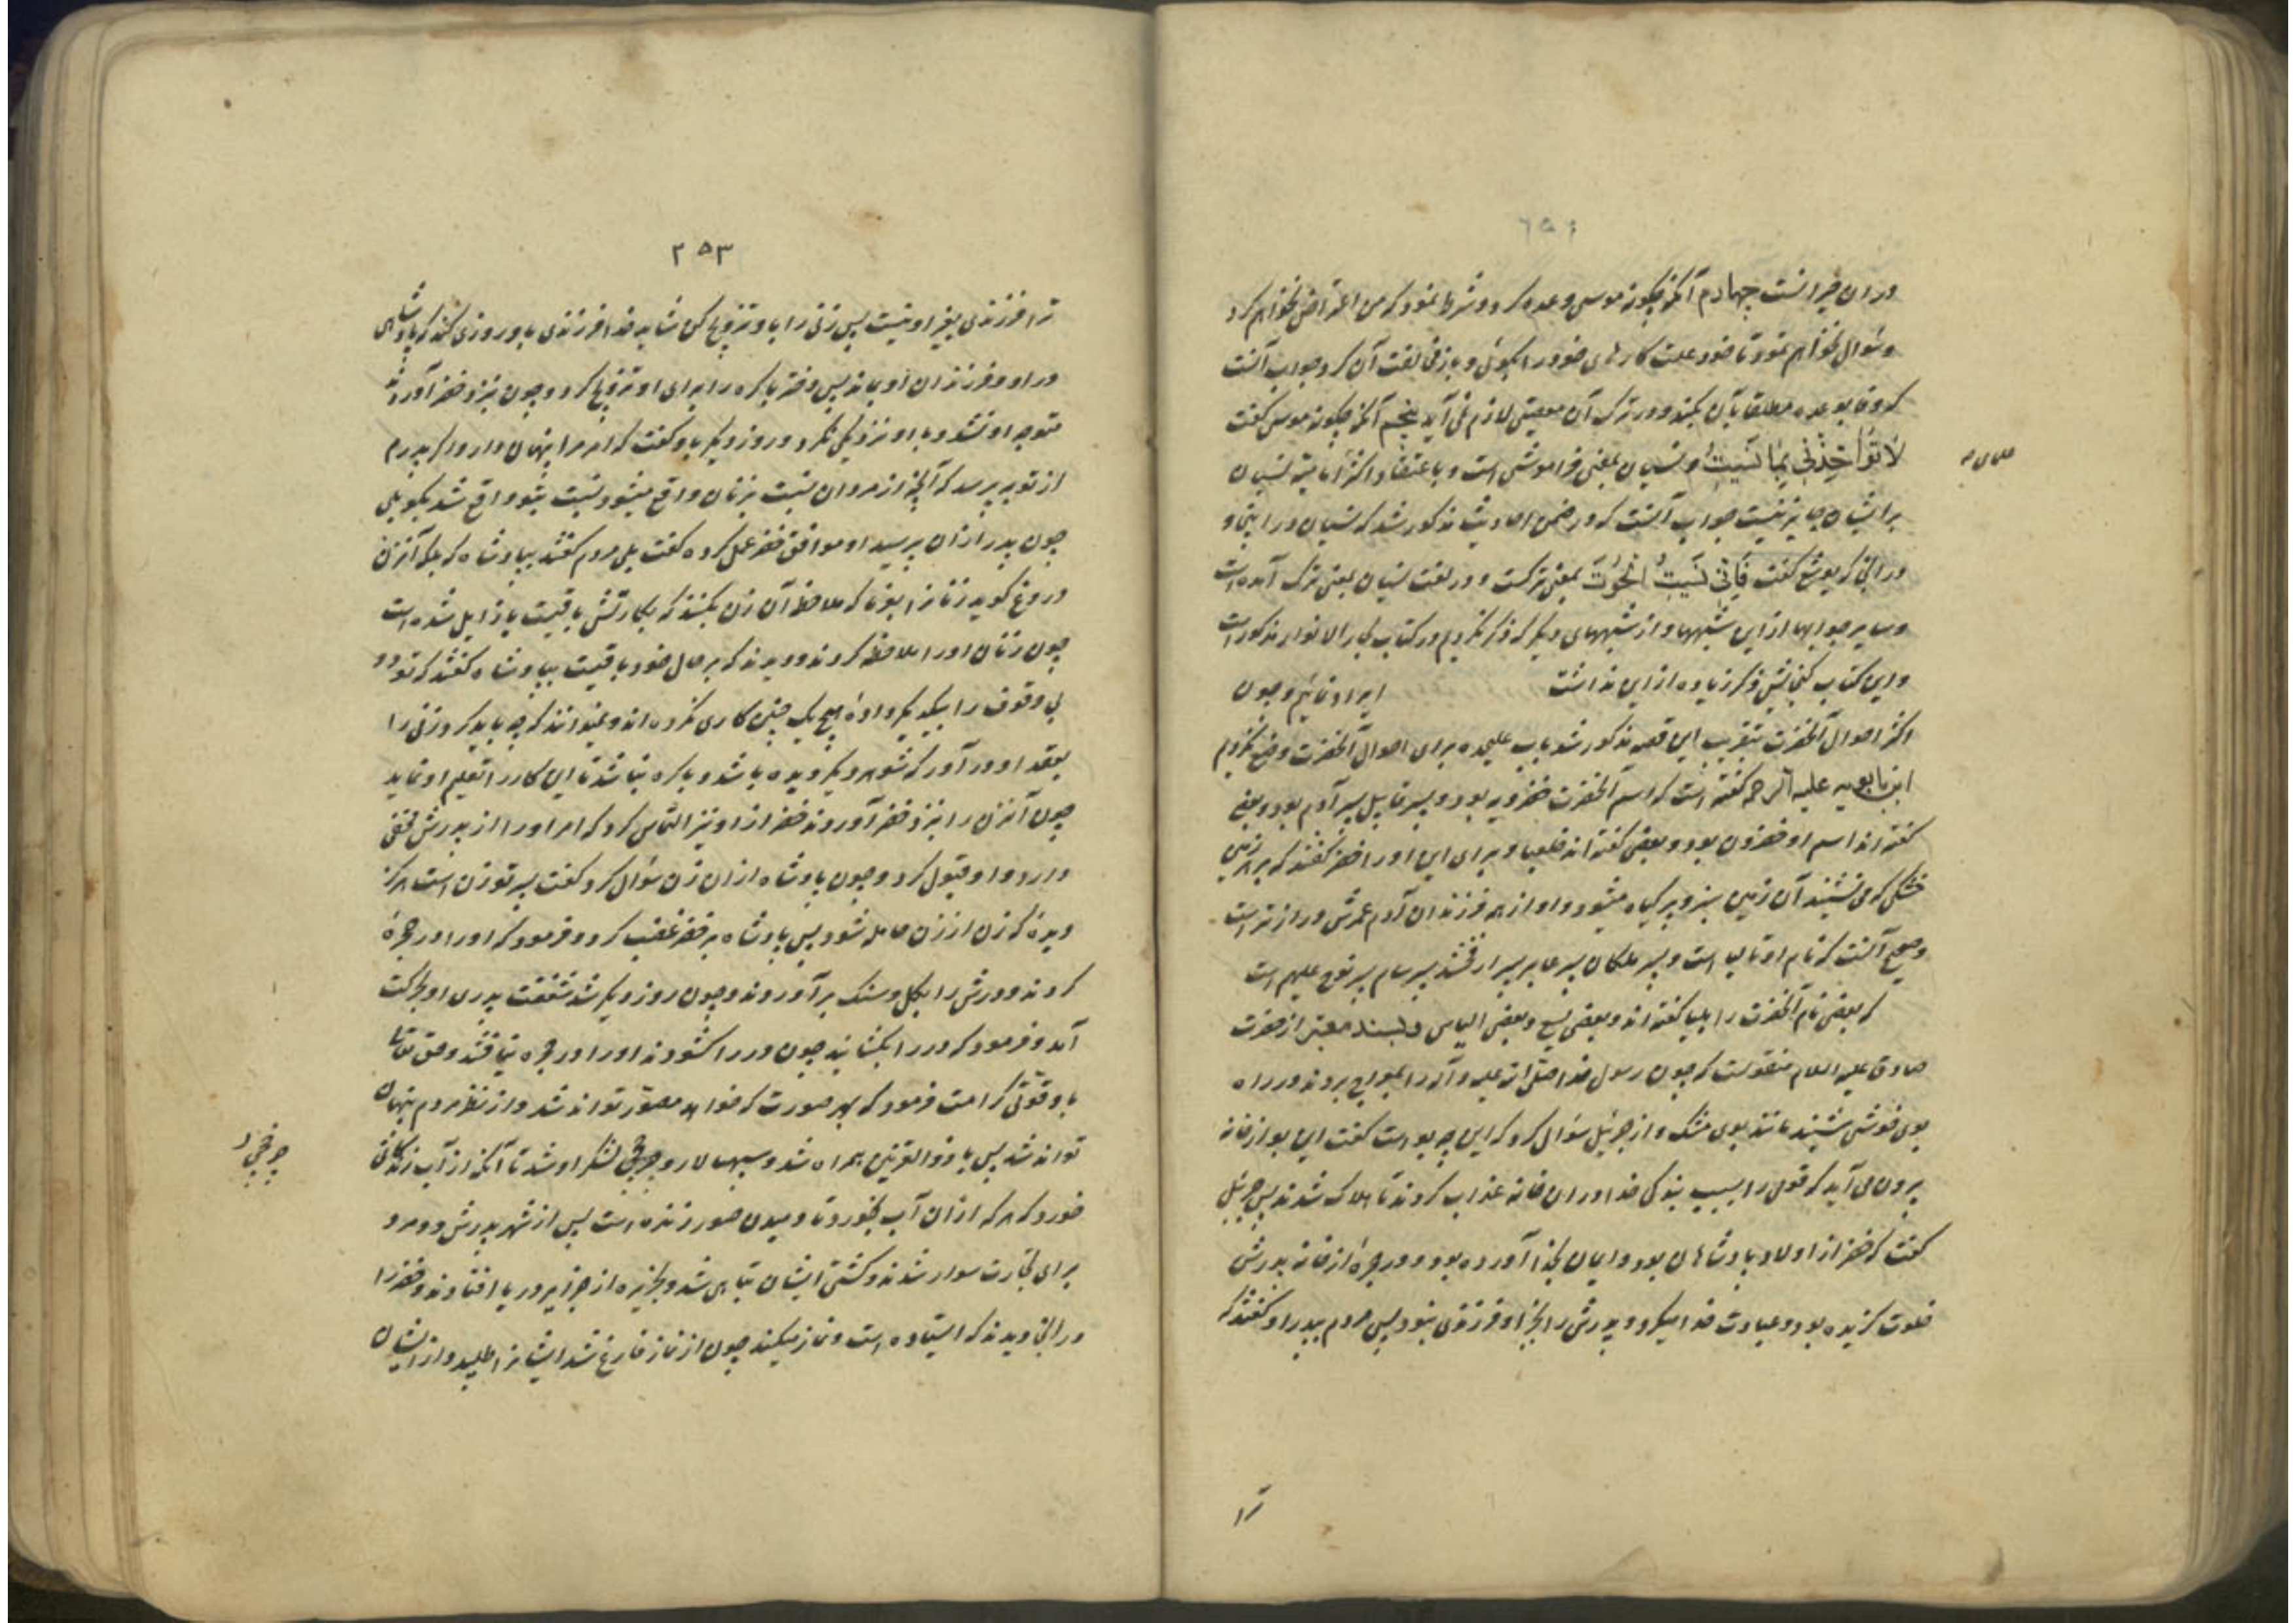 در ان خیرانست چهارم آنکه چکونه موسی وعده کرد و شرط نمود که من اعتراض نخواهم کرد
و سٔوال نخواهم نمود تا خود علت کارهای خود را بکوئی و باز مخالفت آن کرد جواب آنست
که وفا بوعده مطلقا بآن بکنند و در ترک آن معصیتی لازم نمی آید پنجم آنکه چکونه موسی کفت
لَا تُؤَاخِذْنِی بِمَا نَسِیتُ و نسیان بمعنی فراموشی است و باعتقاد اکثر امامیه نسیان
بر ایشان جایز نیست جواب آنست که در ضمن احادیث مذکور شد که نسیان در اینجا و
در آنجا که یوشع کفت فَاِنِّی نَسِیتُ الْحُوتَ بمعنی ترکست و در لغت نسیان بمعنی ترک آمده است
و سایر جوابها از این شبهها و از شبههای دیکر که ذکر نکردم در کتاب بحار الانوار مذکور است
و این کتاب کنجایش ذکر زیاده از این نداشت ایراد نمائیم و چون
اکثر احوال آنحضرت بتقریب این قصه مذکور شد باب علیحده برای احوال آنحضرت وضع نکردم
ابن بابویه علیه الرحمه کفته است که اسم آنحضرت خضرویه بود و پسر قابیل پسر آدم بود و بعضی
کفته اند اسم او خضرون بود و بعضی کفته اند خلعیا و برای این او را خضر کفتند که بر هر زمین
خشکی که می نشیند آن زمین سبز و پر کیاه میشود و او از همه فرزندان آدم عمرش دراز تر است
و صحیح آنست که نام او تالیا است و پسر ملکان پسر عابر پسر ارفخشد پسر سام پسر نوح علیهم است
که بعضی نام آنحضرت را بلیا کفته اند و بعضی یسع و بعضی الیاس و بسند معتبر از حضرت
صادق علیه السلام منقولست که چون رسول خدا صلی الله علیه و آله را بمعراج بردند در راه
بوی خوشی شنیدند مانند بوی مشک و از جبرئیل سؤال کرد که این چه بو است کفت این بو از خانه
بیرون می آید که قومی را بسبب بندکی خدا در ان خانه عذاب کردند تا هلاک شدند پس جبرئیل
کفت که خضر از اولاد پادشاهان بود و ایمان بخدا آورده بود و در حجرۀ از خانه پدرش
خلوت کزیده بود و عبادت خدا میکرد و پدرش را بجز او فرزندی نبود پس مردم بپدر او کفتند که
ترا
۲۵۳
ترا فرزندی بغیر او نیست پس زنی را باو تزویج کن شاید خدا فرزندی باو روزی کند که پادشاهی
در او و فرزندان او بماند پس دختر باکره را برای او تزویج کرد و چون بنزد خضر آوردند
متوجه او نشد و با او نزدیکی نکرد و روز دیکر باو کفت که امر مرا پنهان دار و اکر پدرم
از تو بپرسد که آنچه از مردان نسبت بزنان واقع میشود نسبت بتو واقع شد بکو بلی
چون پدر از ان پرسید او موافق خضر عمل کرده کفت بلی مردم کفتند بپادشاه که بلکه آنزن
دروغ کوید زنانرا بفرما که ملاحظه آن زن بکنند که بکارتش باقیست یا زایل شده است
چون زنان او را ملاحظه کردند دیدند که بر حال خود باقیست بپادشاه کفتند که تو دو
بی وقوف را بیکدیکر دادۀ هیچ یک چنین کاری نکرده اند و نمیدانند که چه باید کرد زنی را
بعقد او در آور که شوهر دیکر دیده باشد و باکره نباشد تا این کار را تعلیم او نماید
چون آنزن را بنزد خضر آوردند خضر از او نیز التماس کرد که امر او را از پدرش مخفی
دارد و او قبول کرد و چون پادشاه از ان زن سٔوال کرد کفت پسر تو زن است هرکز
دیدۀ که زن از زن حامله شود پس پادشاه بر خضر غضب کرد و فرمود که او را در حجرۀ
کردند و درش را بکل و سنک بر آوردند و چون روز دیکر شد شفقت پدری او بحرکت
آمد و فرمود که در را بکشایند چون در را کشودند او را در حجره نیافتند و حق تعالی
باو قوتی کرامت فرمود که بهر صورت که خواهد مصور تواند شد و از نظر مردم پنهان
تواند شد پس با ذوالقرنین همراه شد و سپهسالار و چرخچی لشکر او شد تا آنکه از آب زندکانی
خورد که هر که از ان آب بخورد تا دمیدن صور زنده است پس از شهر پدرش دو مرد
برای تجارت سوار شدند و کشتی ایشان تباهی شد و بجزیره از جزایر دریا افتادند و خضر را
در آنجا دیدند که ایستاده است و نماز میکند چون از نماز فارغ شد ایشانرا طلبید و از ایشان
چرخچی